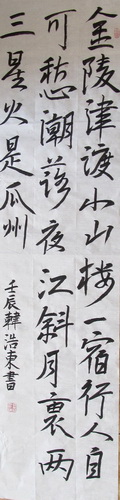 金陵津渡小山楼一宿行人自
可愁潮落夜江斜月裏两
三星火是瓜州
壬辰韓浩東書